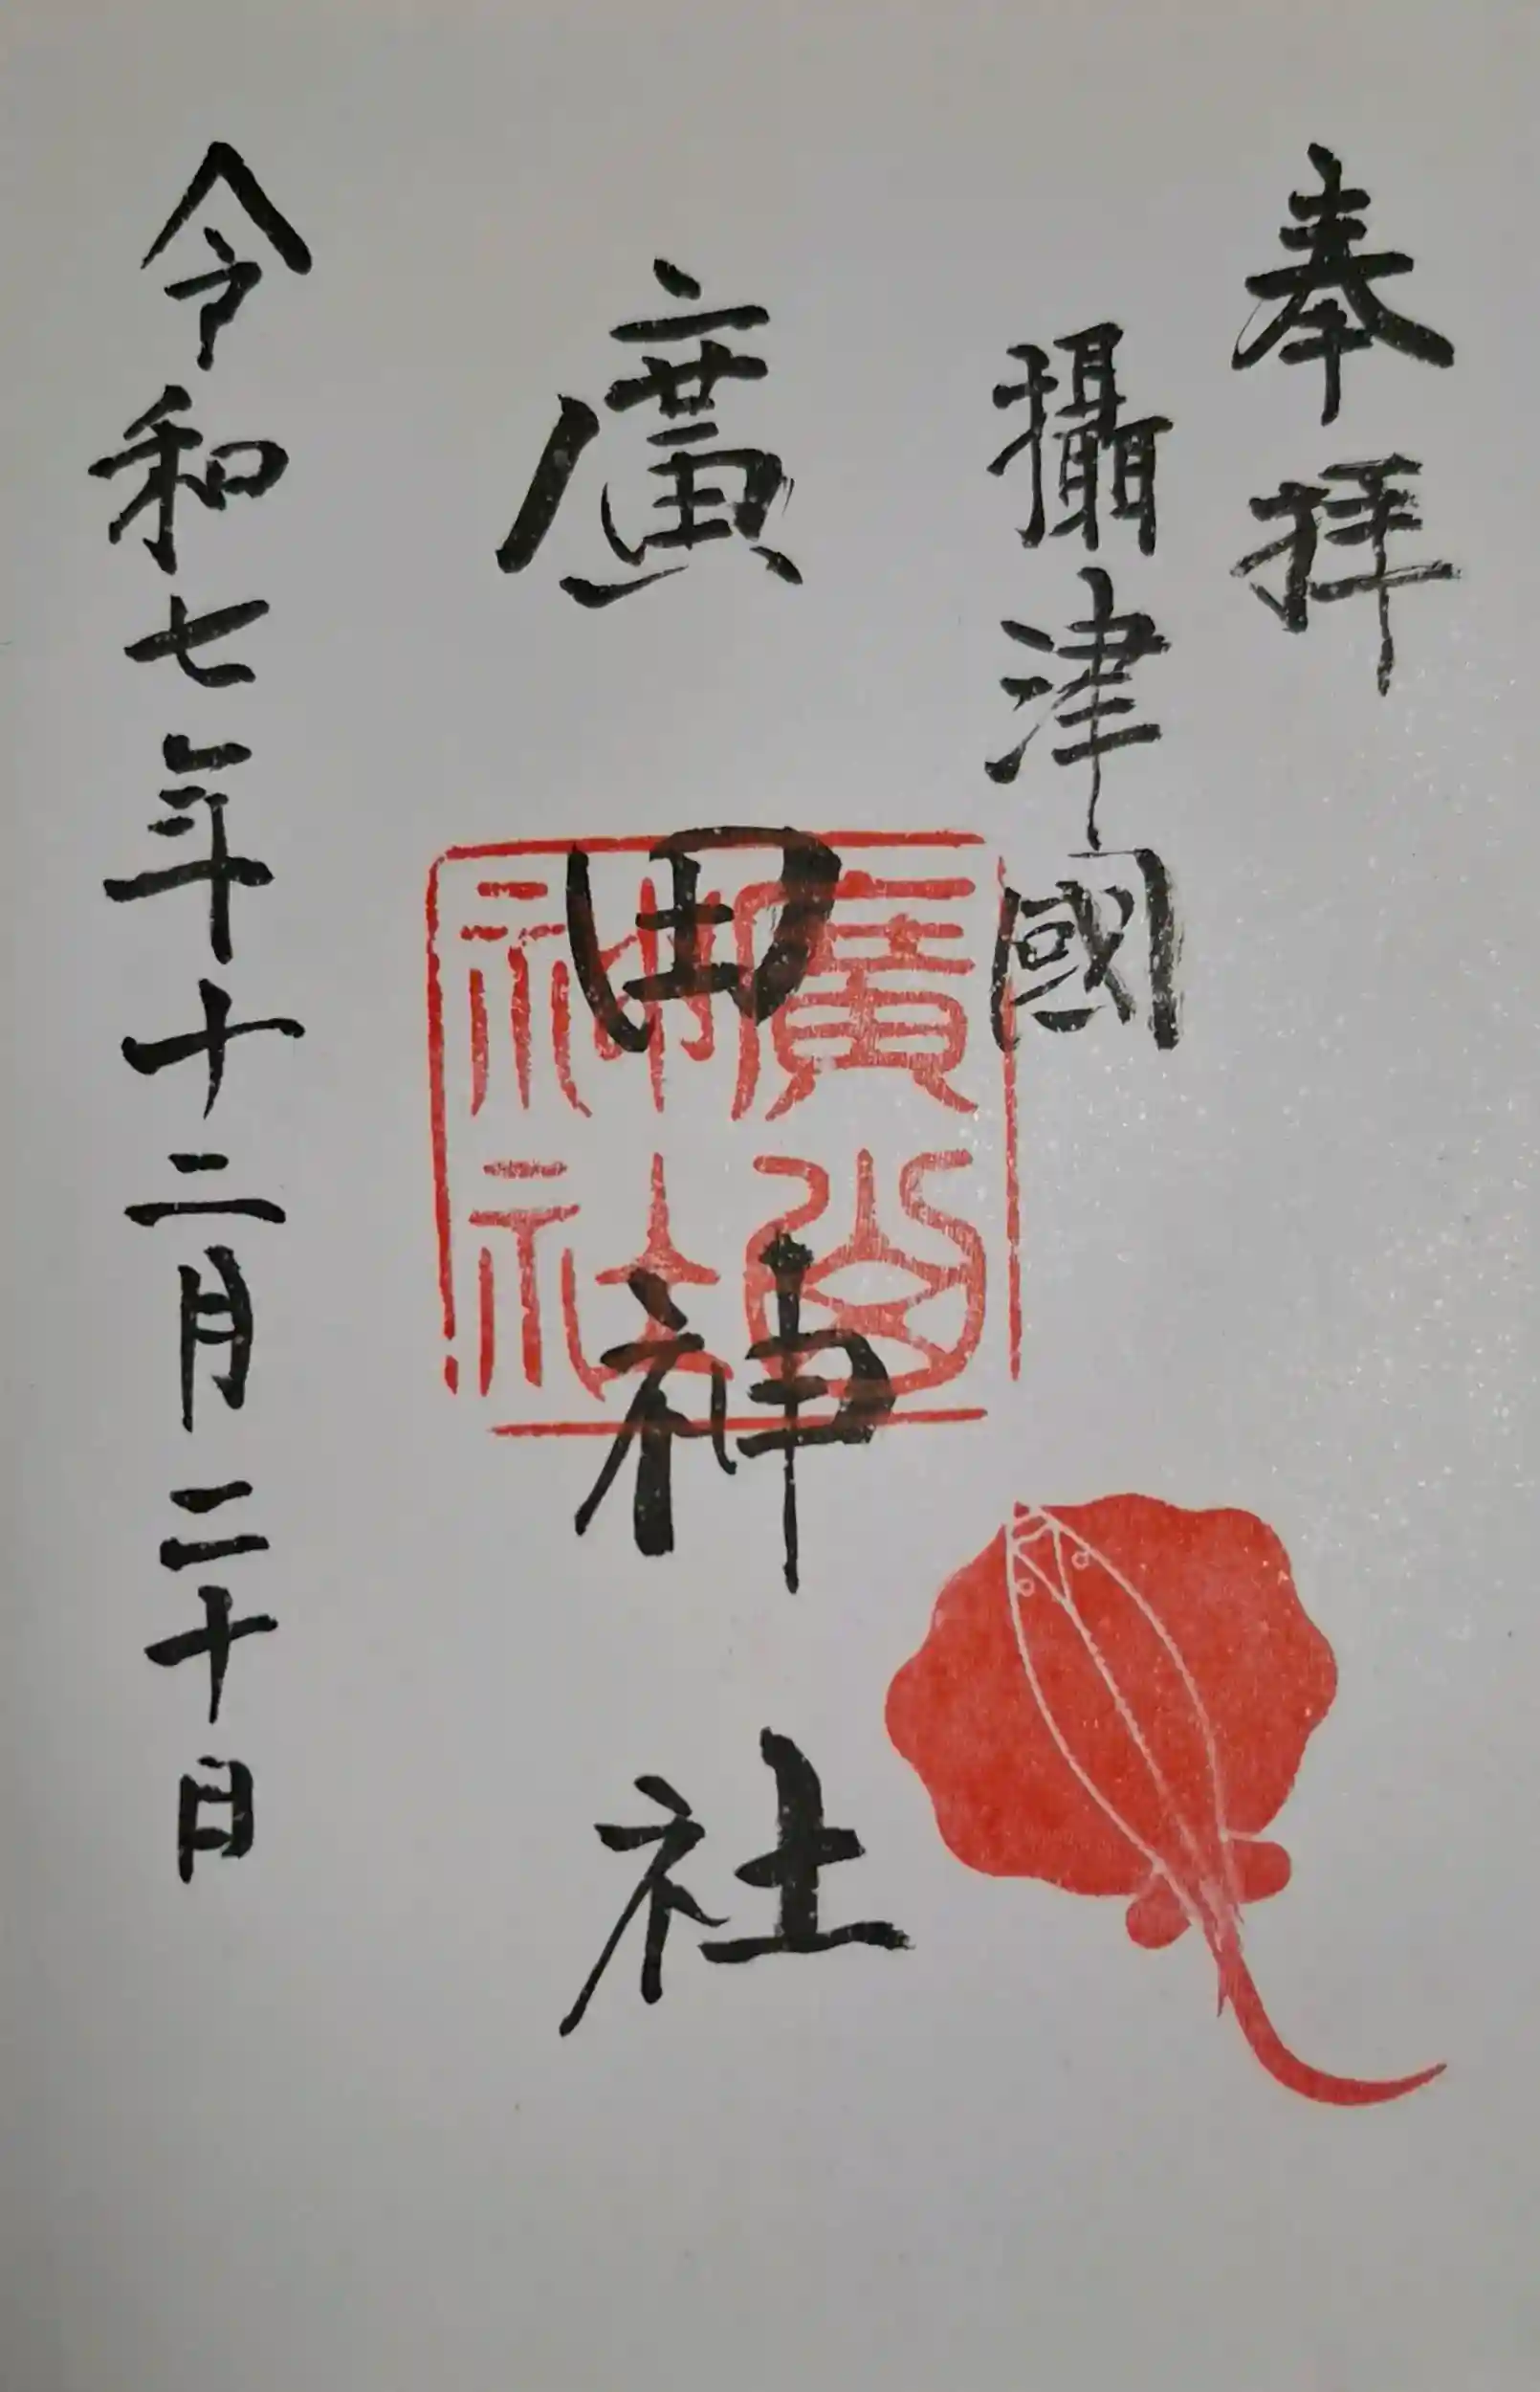 奉拝
攝津國
廣田神社
令和七年十二月二十日